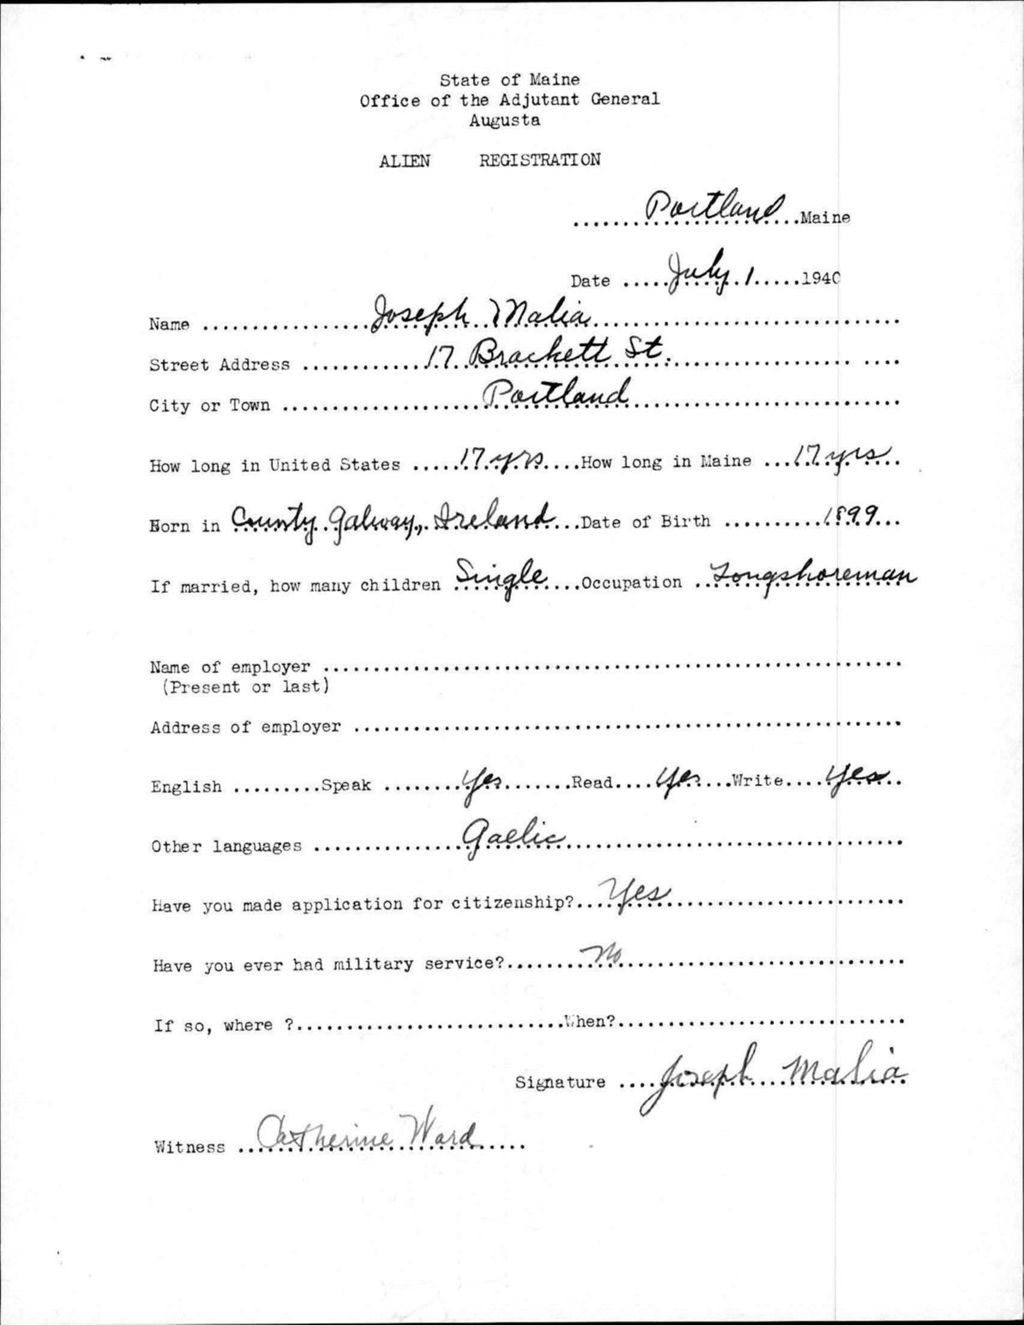 State of Maine
Office of the Adjutant General
Augusta
ALIEN REGISTRATION
.......Portland.......Maine
Date .....July 1.....1940
Name .................Joseph Malia...............................
Street Address ............17 Brackett St........................
City or Town ....................Portland........................
How long in United States .....17 yrs....How long in Maine ...17 yrs...
Born in County Galway, Ireland...Date of Birth ..........1899...
If married, how many children Single....Occupation ..Longshoreman
Name of employer ................................................
(Present or last)
Address of employer .............................................
English .........Speak ........Yes........Read....Yes...Write....Yes..
Other languages ...............Gaelic............................
Have you made application for citizenship?...Yes.................
Have you ever had military service?........No....................
If so, where ?...........................When?...................
Signature ....Joseph Malia
Witness ...Catherine Ward.....